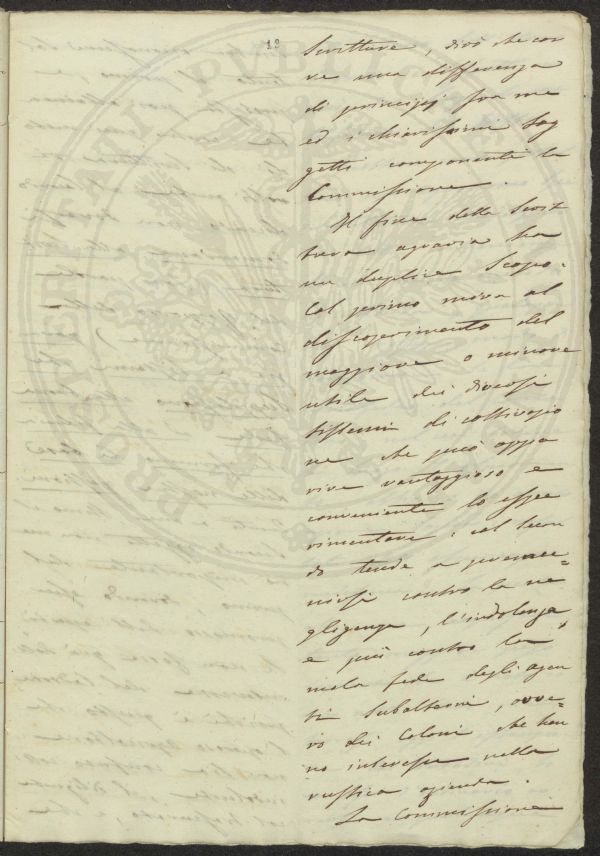 19
Scritture, dirò che cor
re una differenza
di principj fra me
ed i chiarissimi Sog
getti componenti la
Commissione.
Il fine della Scrit
tura agraria ha
un duplice Scopo.
Col primo mira al
discoprimento del
maggiore o minore
utile dei diversi
sistemi di coltivazio
ne che può appa
rire vantaggioso e
conveniente lo espe
rimentare: col secon
do tende a premu=
nirsi contro la ne
gligenza, l'indolenza,
e più contro la
mala fede degli agen
ti Subalterni, ovve=
ro dei Coloni che han
no interesse nella
rustica azienda.
La Commissione
PROSPERITATI PUBLICAE